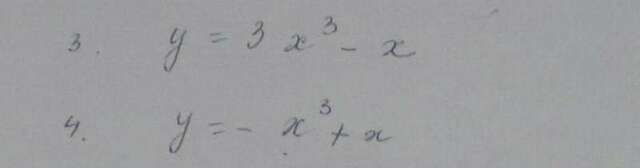 3. y = 3x³ - x
4. y = - x³ + x